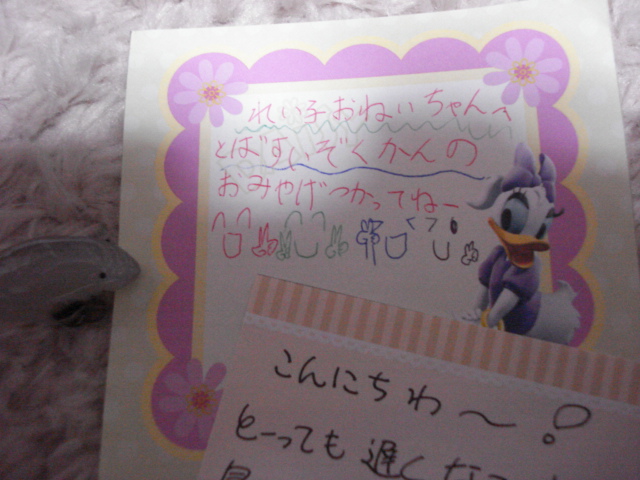 れい子おねいちゃんへ
とばすいぞくかんの
おみやげつかってねー
こんにちわ〜!
とーっても遅くなっ